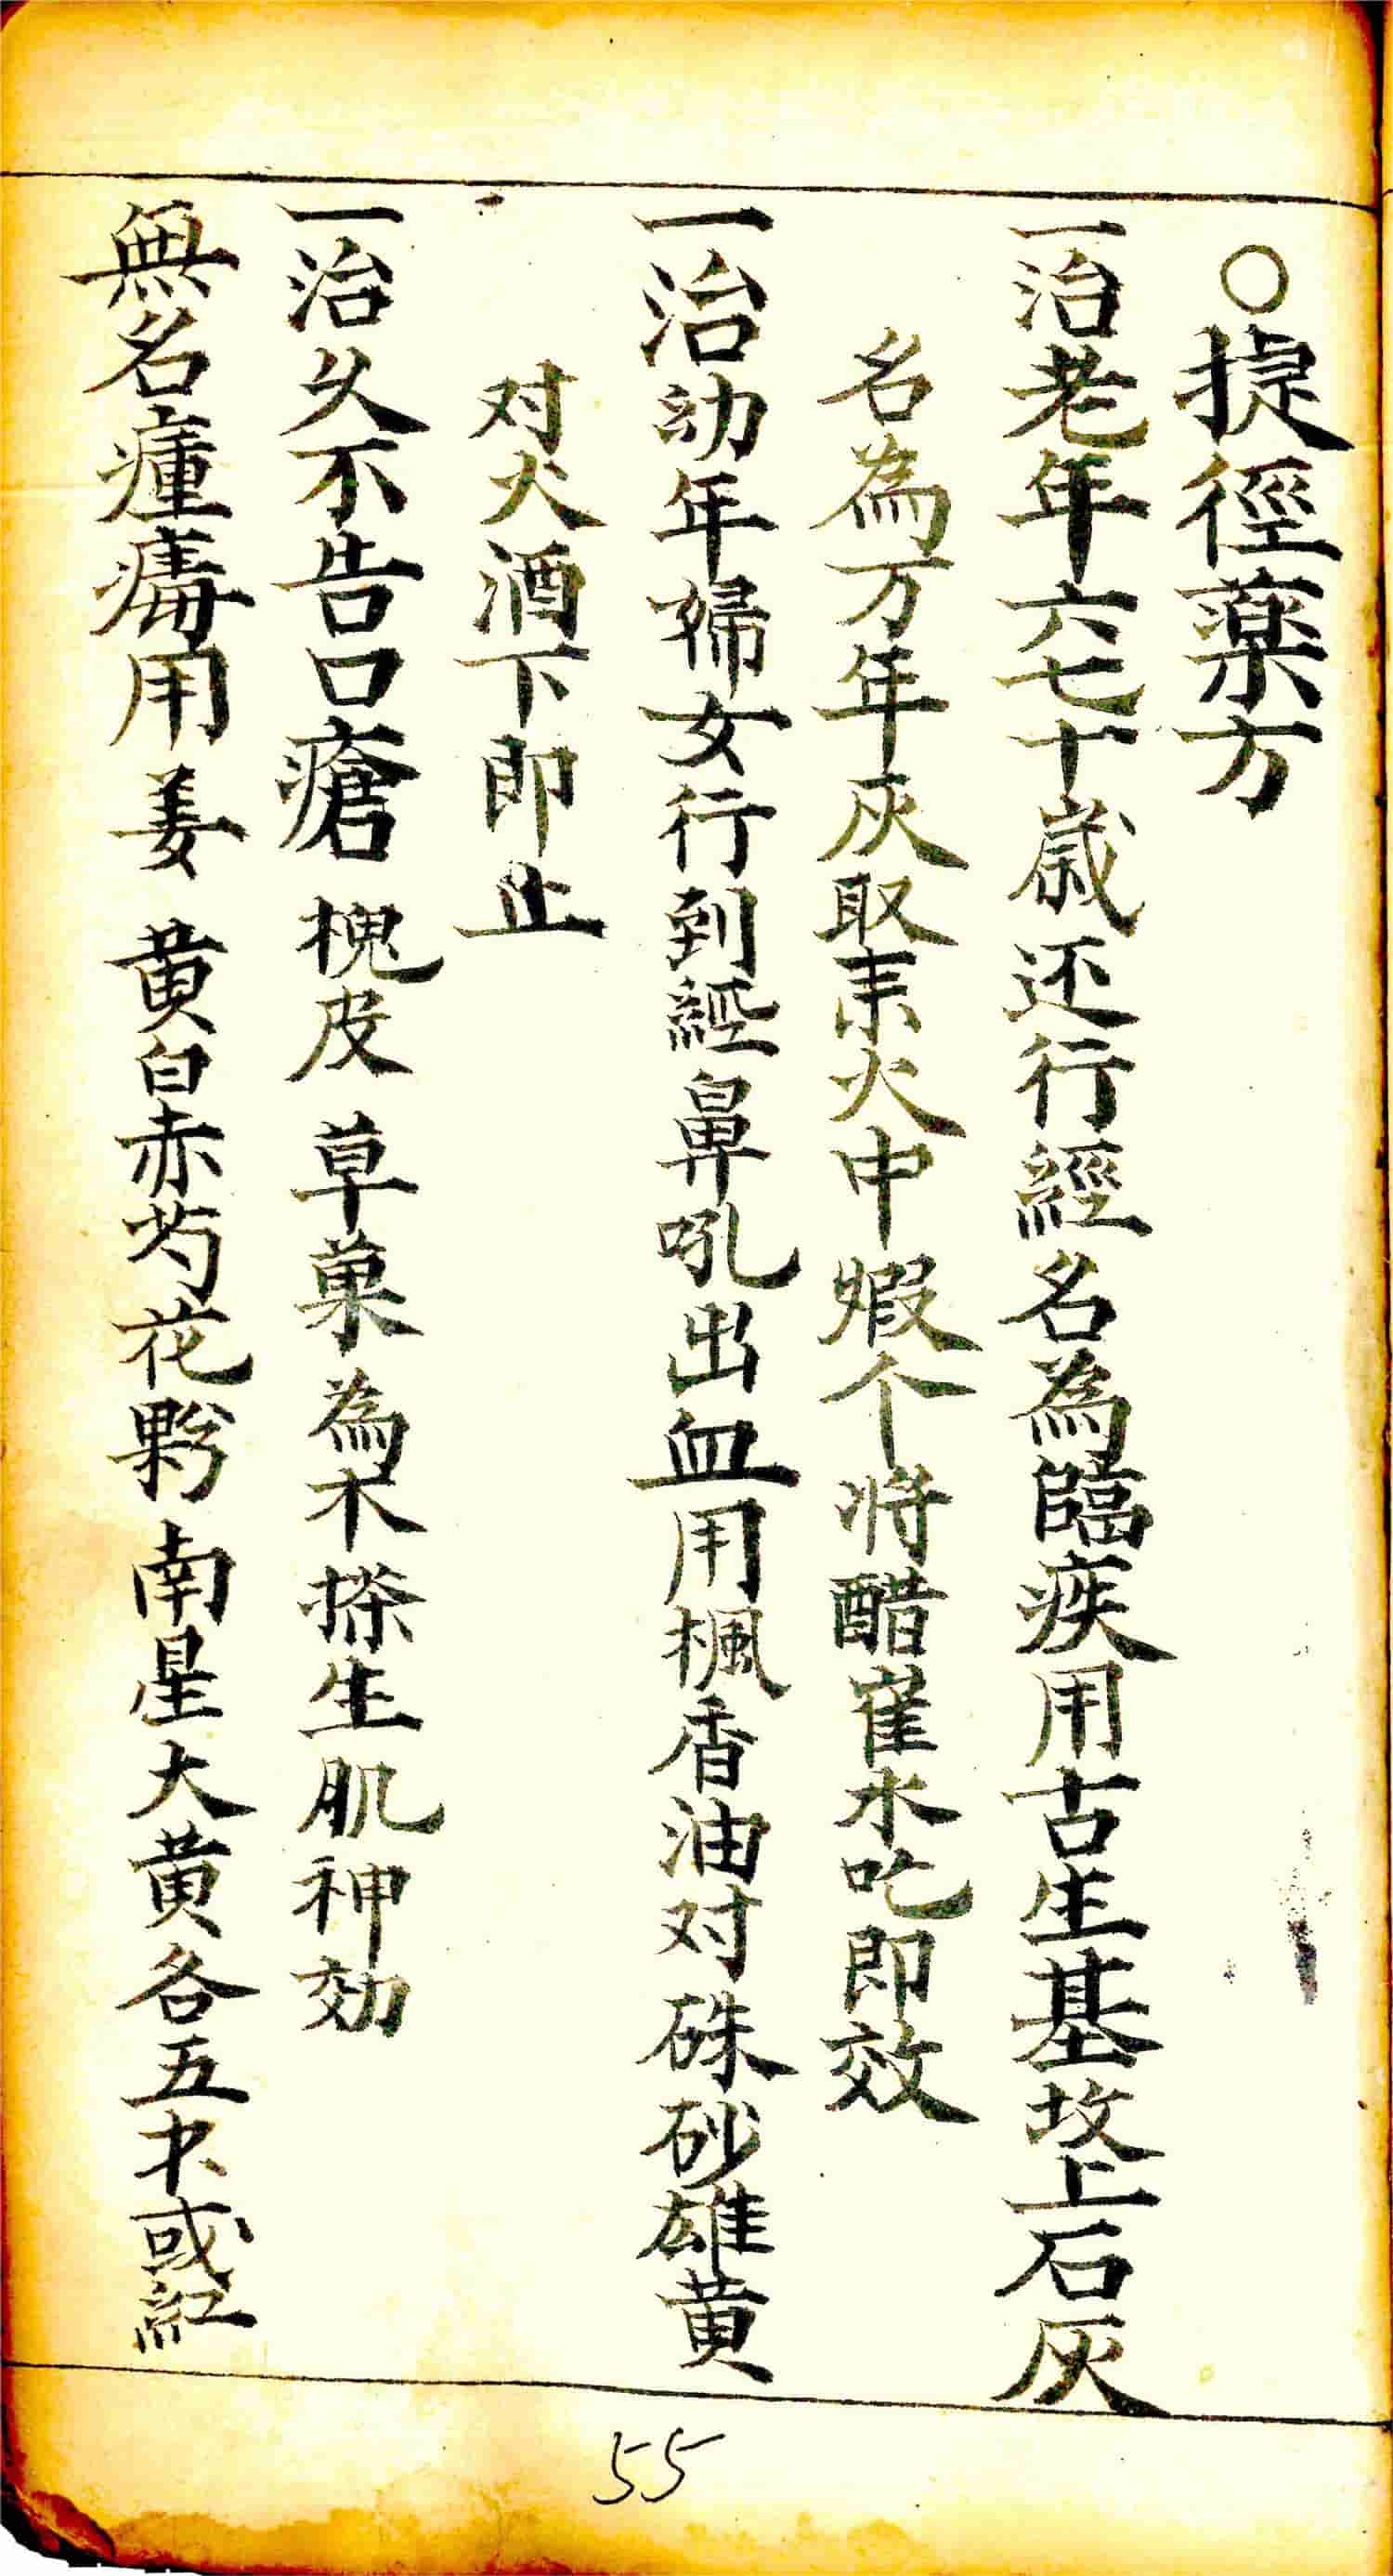 〇捷徑薬方
一治老年六七十歳还行經名為臨疾用古生基坟上石灰
名為万年灰取来火中煆个将醋崔水吃即效
一治幼年婦女行到經鼻吼出血用楓香油对硃砂雄黄
对火酒下即止
一治久不告口瘡 槐皮 草菓為末搽生肌神効
無名瘇痛用姜 黄白赤芍花夥南星大黄各五才或紅
55